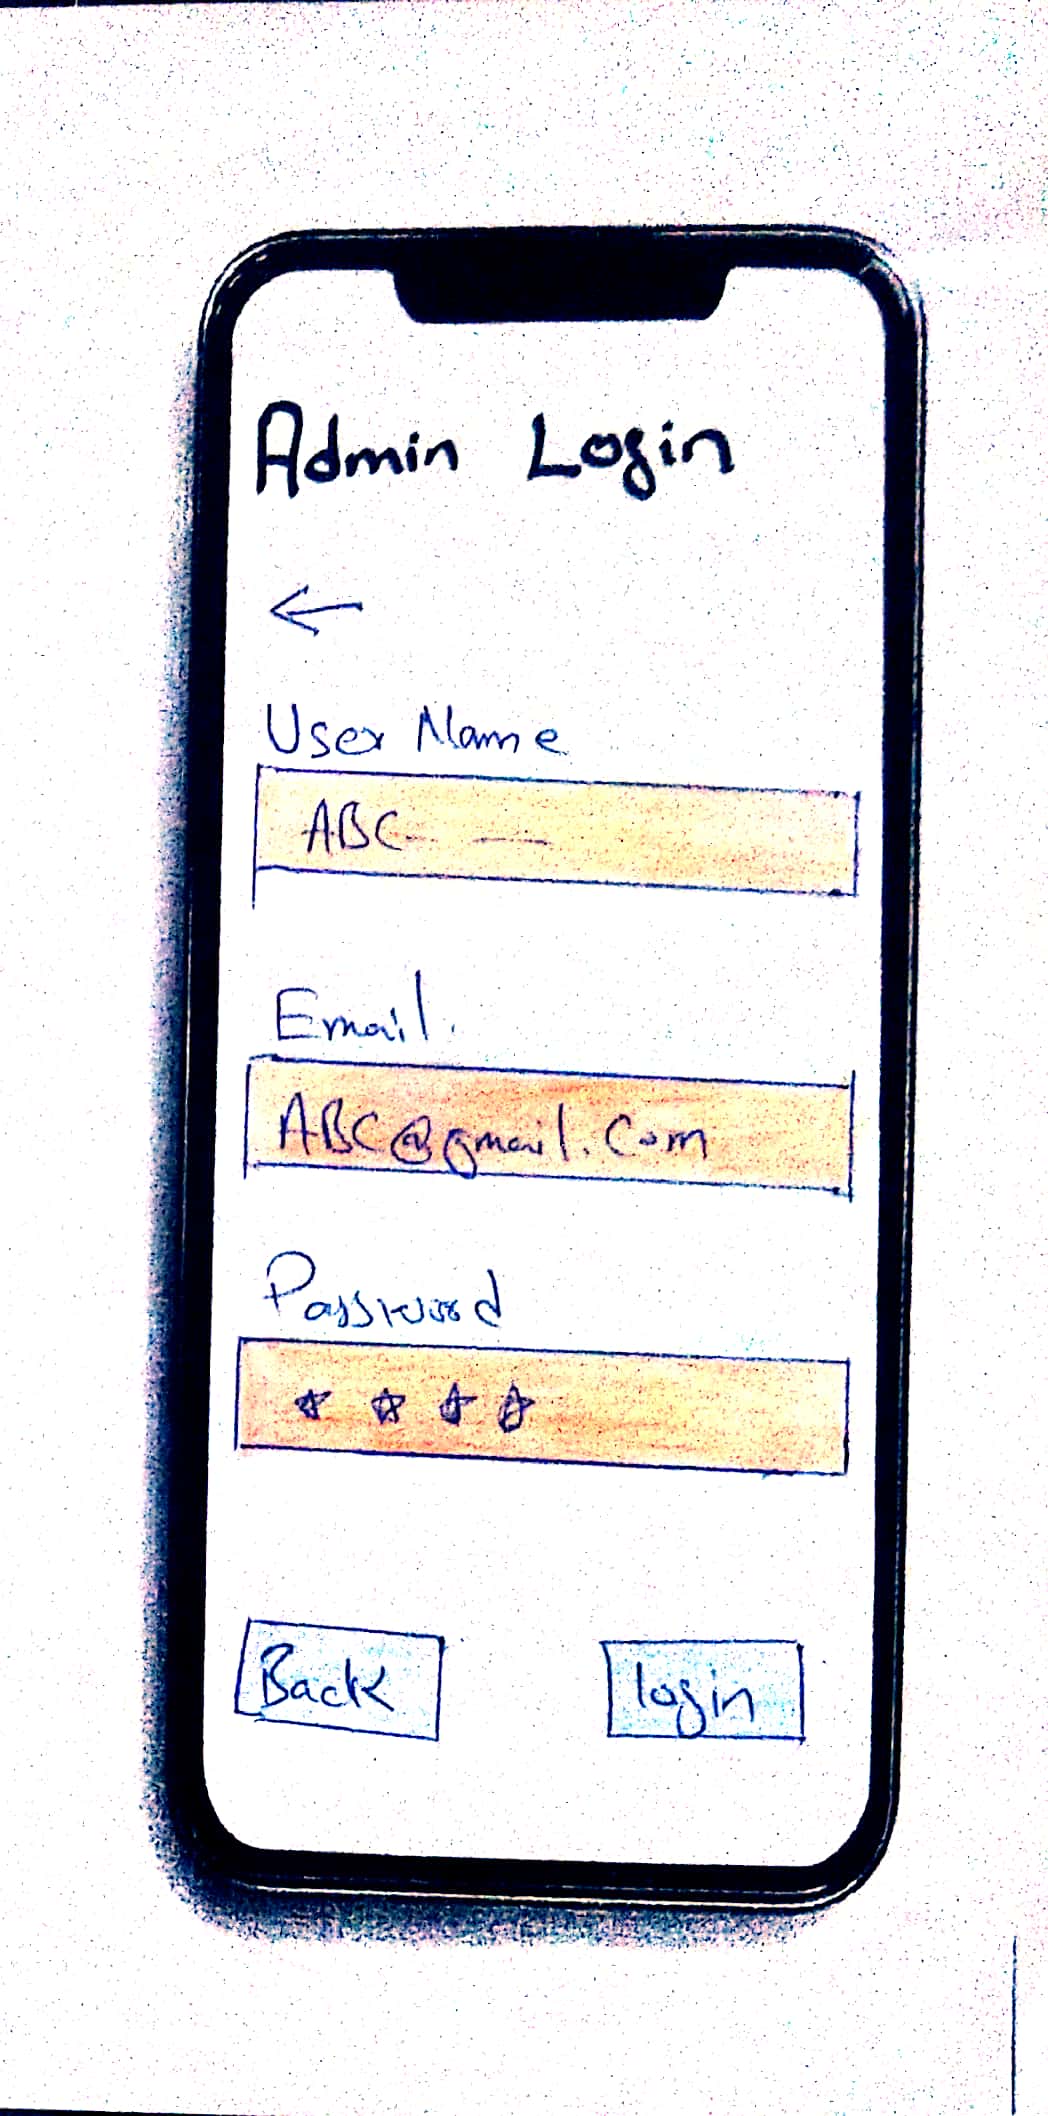 Admin Login
←
User Name
ABC- —
Email.
ABC@gmail.com
Password
* * * *
Back login